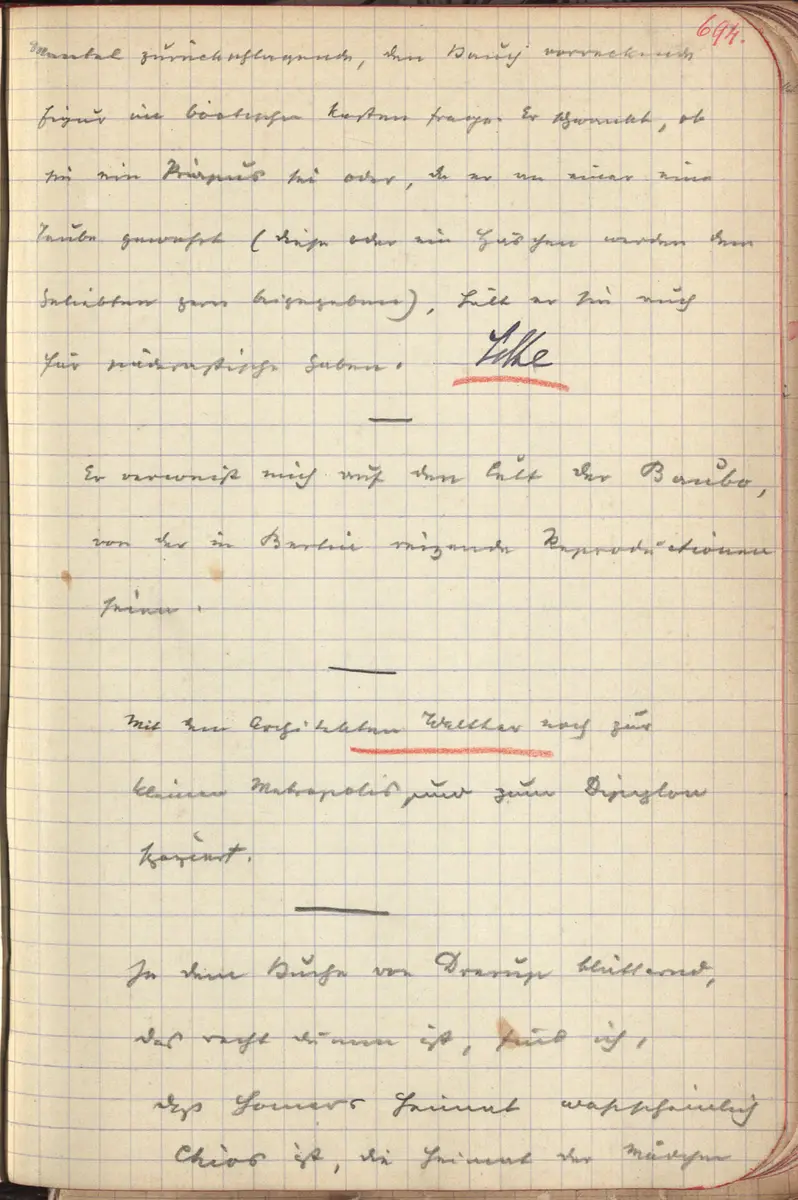 694.
Mantel zurückschlagende, den Bauch vorreckende
Figur im böotischen Kasten frage. Er schwankt, ob
sie ein Priapus sei oder, da er an einer eine
Taube gewahrt (diese oder ein Häschen werden dem
Geliebten gern beigegeben), hält er sie auch
für päderastische Gaben.
Er verweist mich auf den Cult der Baubo,
von der in Berlin reizende Reproductionen
seien.
Mit dem Architekten Walther noch zur
kleinen Metropolis und zum Dipylon
spaziert.
In dem Buche von Drerup blätternd,
das recht dumm ist, find ich,
daß Homers Heimat wahrscheinlich
Chios ist, die Heimat der Mädchen